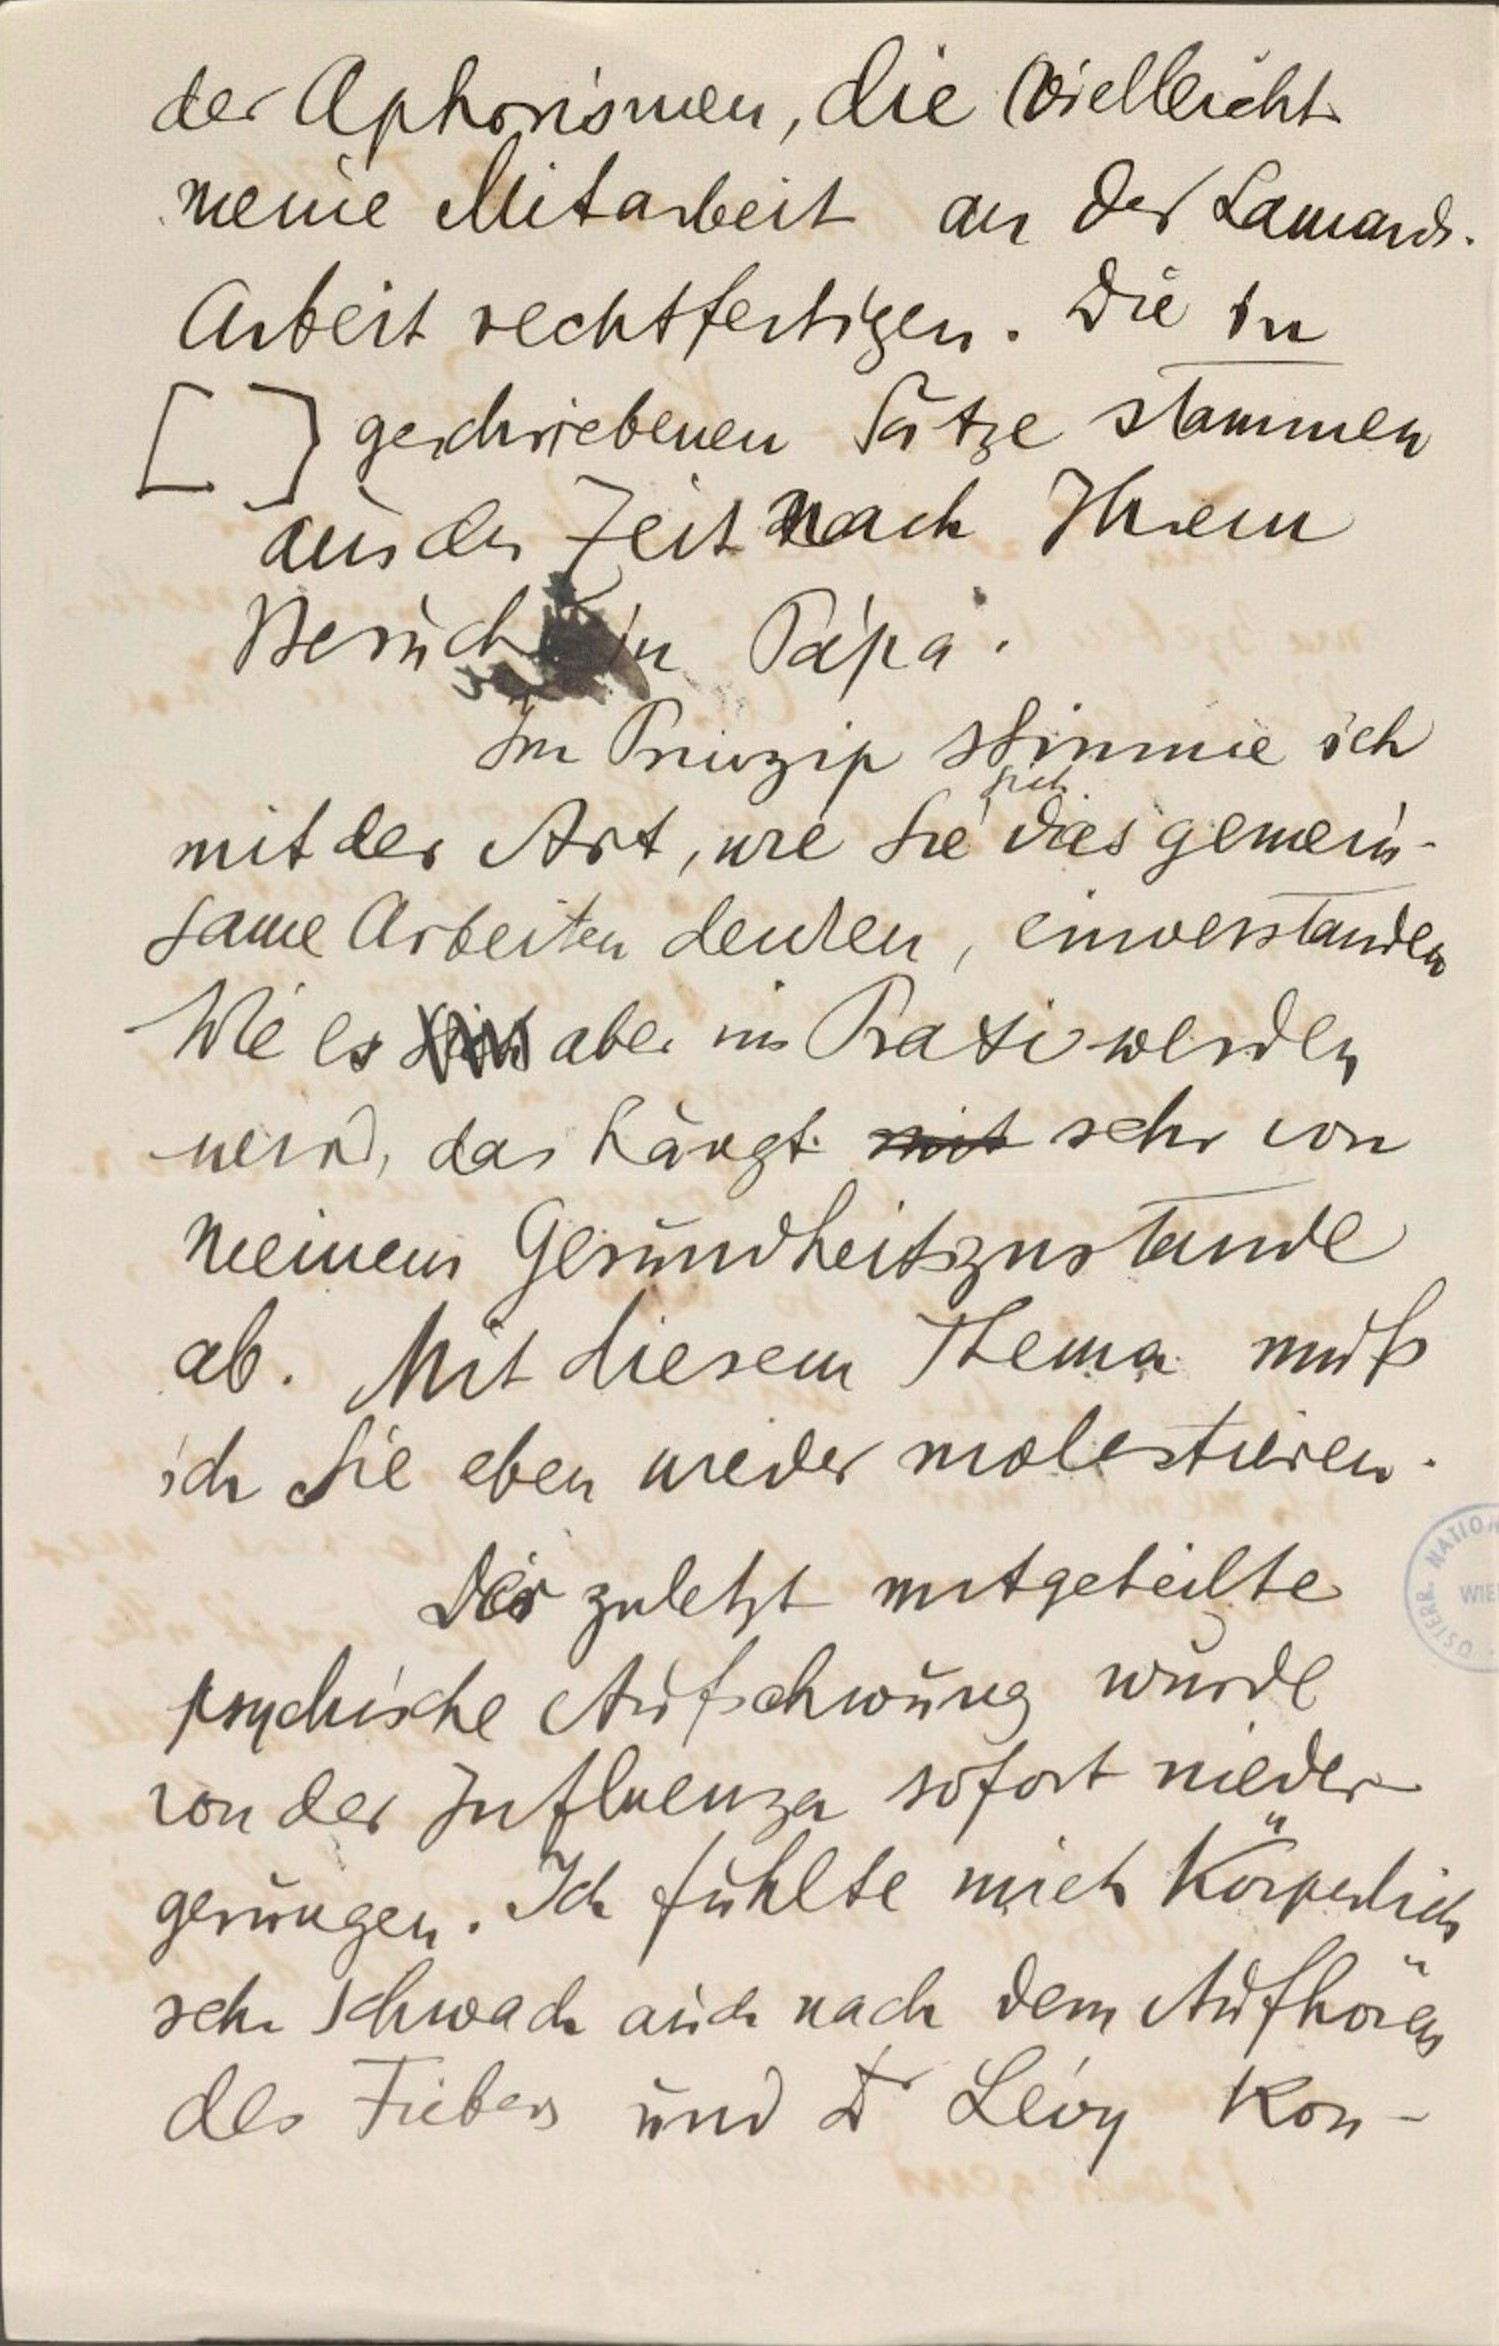 der Aphorismen, die vielleicht
meine Mitarbeit an der Lamarck-
Arbeit rechtfertigen. Die in
[ ] geschriebenen Sätze stammen
aus der Zeit nach Ihrem
Besuch in Pápa.
Im Prinzip stimme ich
mit der Art, wie Sie sich dies gemein-
same Arbeiten denken, einverstanden
Wie es aber in Praxi werden
wird, das hängt mit sehr von
meinem Gesundheitszustande
ab. Mit diesem Thema muß
ich Sie eben wieder molestieren.
Der zuletzt mitgeteilte
psychische Aufschwung wurde
von der Influenza sofort nieder
gerungen. Ich fühlte mich körperlich
sehr schwach auch nach dem Aufhören
des Fiebers und Dr Lévy kon-
ÖSTERR. NATION
WIE